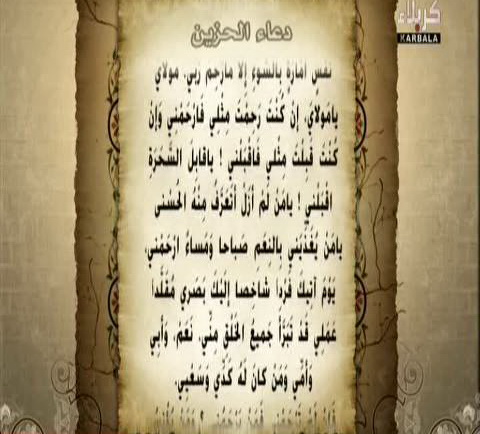 كربلاء
KARBALA
دعاء الحزين
نفس أمارة بالسوء إلا مارحم ربي، مولاي
يامَولايَ، إنْ كُنْتَ رَحِمْتَ مِثْلي فَارْحَمْني وَإنْ
كُنْتَ قَبِلْتَ مِثْلي فَاقْبَلْني ! ياقابِلَ السَّحَرَةِ
اقْبَلْني ! يامَنْ لَمْ أزَلْ أتَعَرَّفُ مِنْهُ الحُسْنى
يامَنْ يُغَذِّيَني بِالنِّعَمِ صَباحا وَمَساءً ارْحَمْني،
يَوْمَ آتيكَ فَرْدا شاخِصا إلَيْكَ بَصَري مُقَلَّدا
عَمَلي قَدْ تَبَرَّأ جَميعُ الخَلْقِ مِنّي، نَعَمْ، وَأبي
وَأُمّي وَمَنْ كانَ لَهُ كَدّي وَسَعْيي،